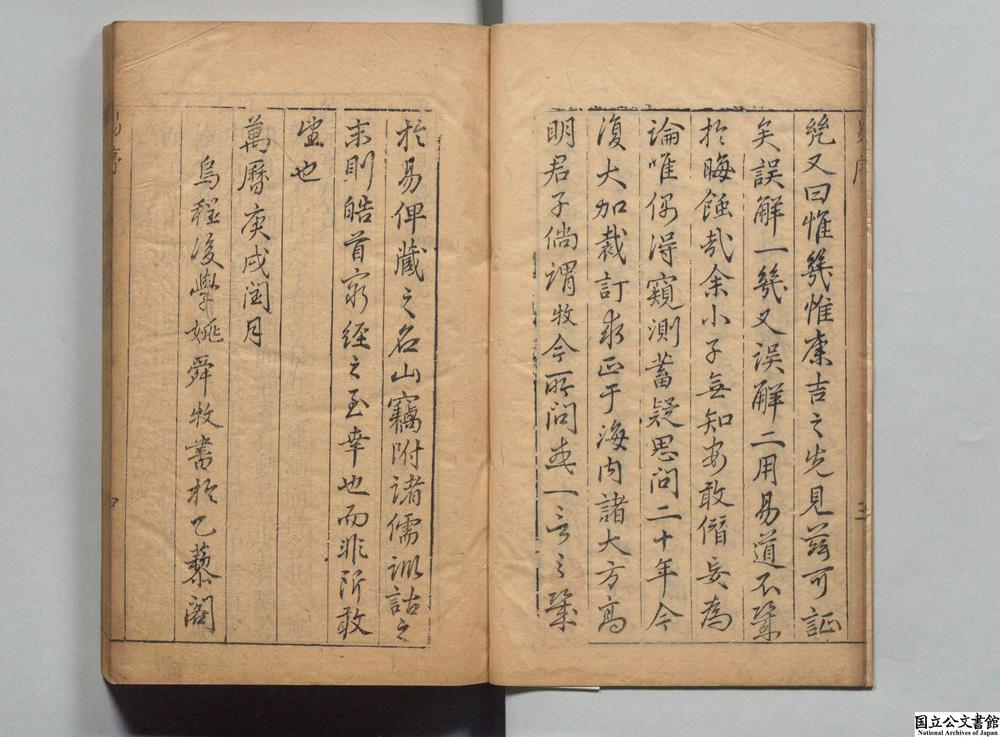 凳又曰惟幾惟康吉之先見茲可証
矣誤解一幾又誤解二用易道不幾
於晦蝕哉余小子無知安敢僭妄為
論唯偶得窺測蓄疑思問二十年今
復大加裁訂求正于海内諸大方高
明君子倘謂牧今所問或一言之幾
於易俾藏之名山竊附諸儒訓詁之
末則皓首窮經之至幸也而非所敢
望也
萬曆庚戌閏月
烏程後學姚舜牧書於乙藜閣
易序
国立公文書館
National Archives of Japan